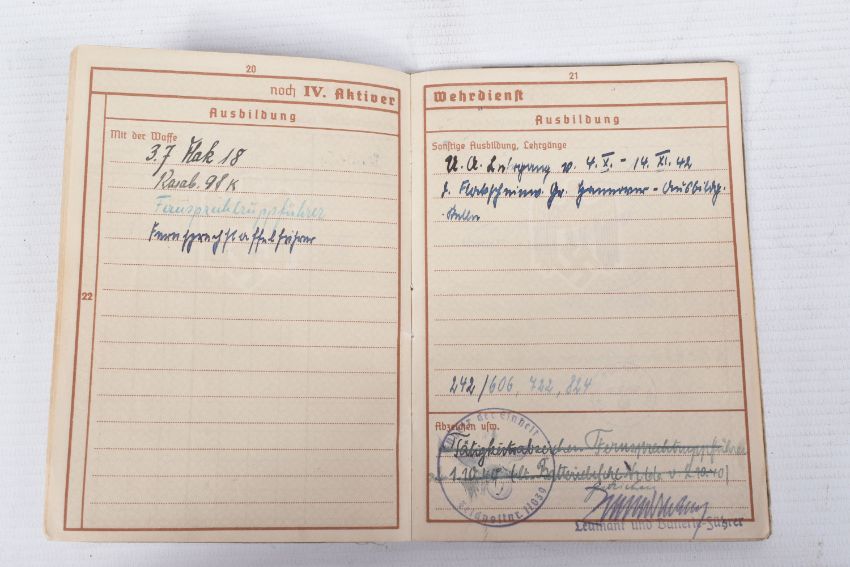 20
noch IV. Aktiver
Ausbildung
Mit der Waffe
3,7 Flak 18
Karab. 98 K
Fernsprechtruppführer
Fernsprechstaffelführer
22
21
Wehrdienst
Ausbildung
Sonstige Ausbildung, Lehrgänge
U. A. Lehrgang v. 4. X. - 14. XI. 42
Hannover - Ausbildg.
242/606, 722, 824
Abzeichen usw.
Tätigkeitsabzeichen Fernsprechtruppführer
1.10.40 (lt. Batteriebefehl Nr. 66 v. 2.10.40)
gestrichen
der Einheit
Feldpostnr.
Leutnant und Batterie-Führer